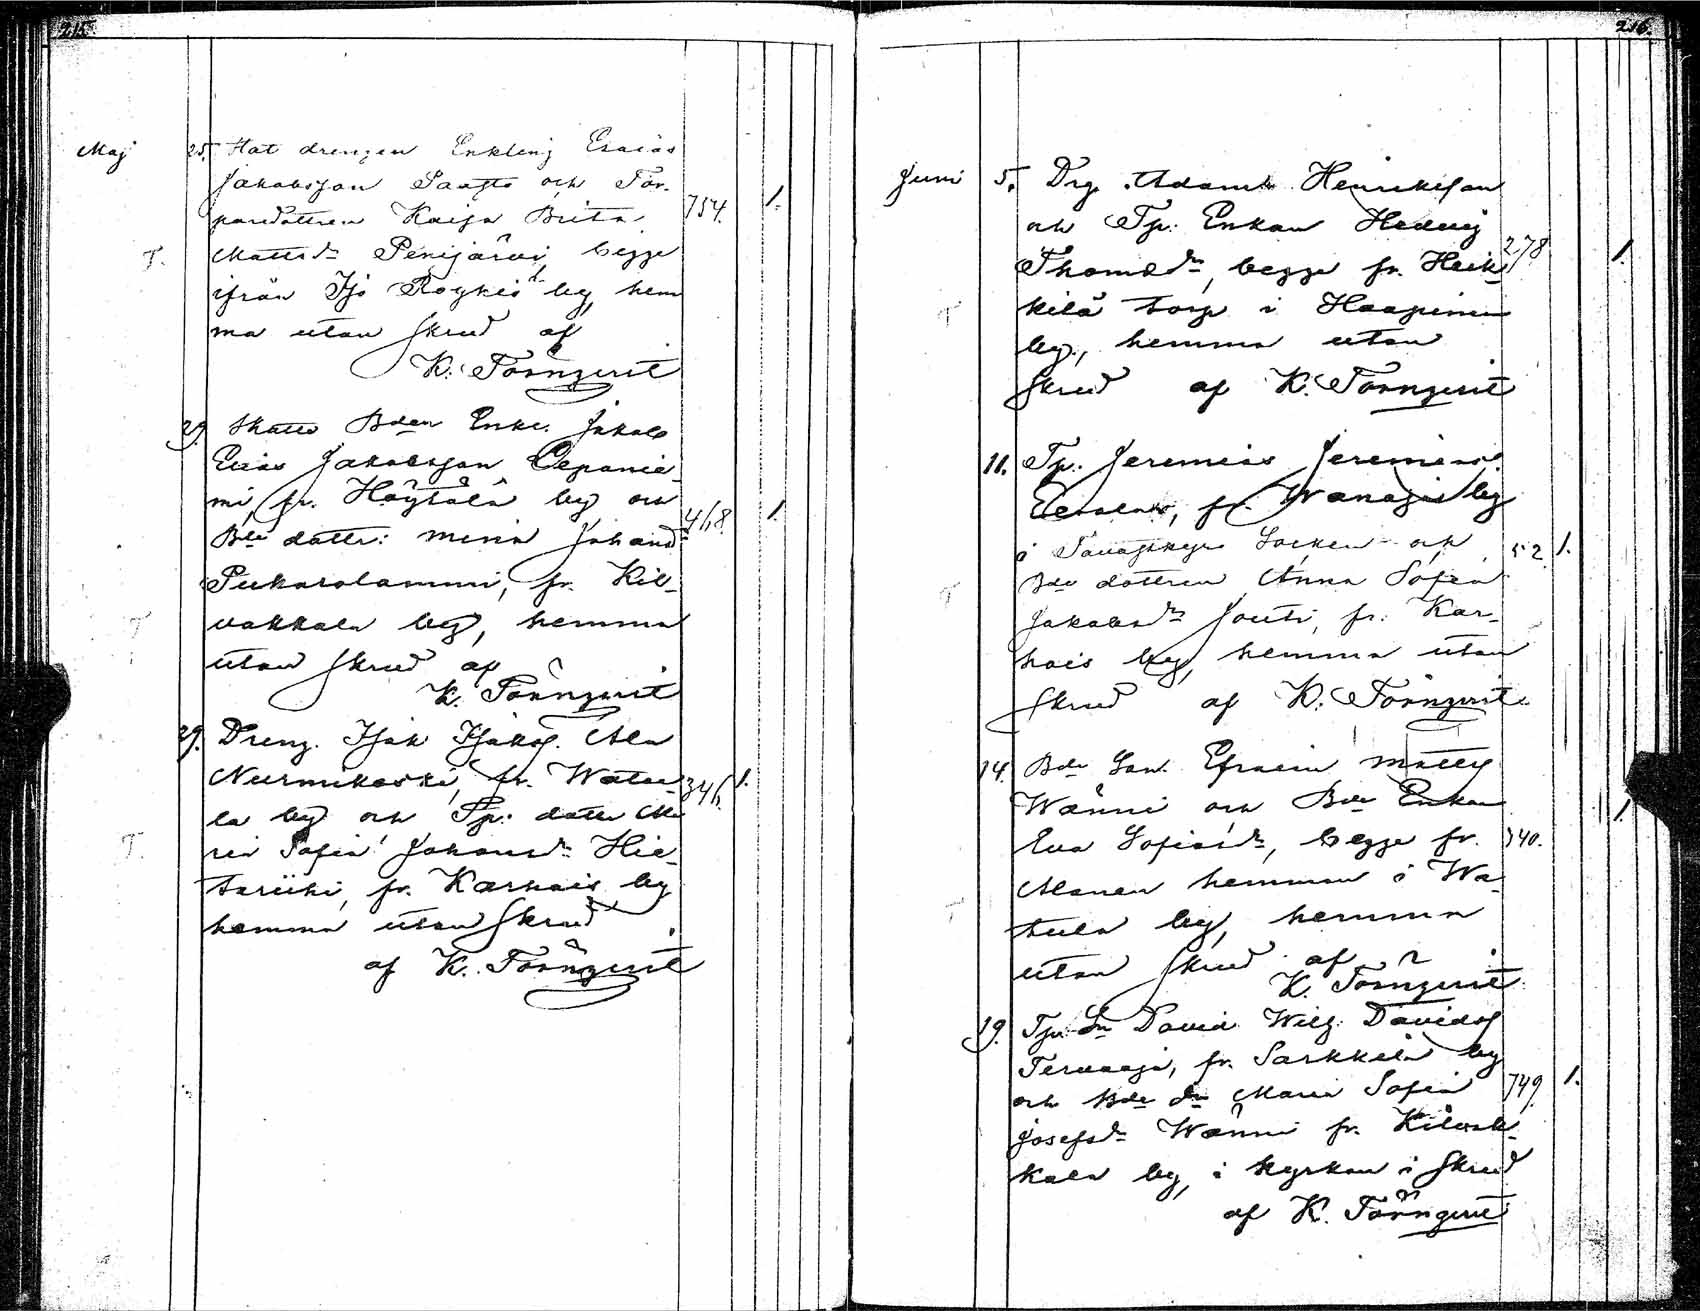 215.
Maj 25. Hat drengen Enkling Esaias
Jakobsson Saasto och Tor-
paredottren Kaisa Brita 754. 1.
T. Mattsdr Penijärvi, begge
ifrån Iso Röykkis by, hem
ma utan Skrud af
K. Törnqvist
29. Skatte Bden Enkl. Jakob
Elias Jakobsson Lepänie-
mi, fr. Höytölä by och 468 1.
Bde dottr: Maria Johansdr
Pukarolammi, fr. Kil-
T vakkala by, hemma
utan Skrud af
K. Törnqvist
29. Dreng. Isak Isaks. Ala
Nurmikoski, fr. Watu- 346. 1.
la by och Tp: dottr Ma
T. ria Sofia Johansdr Hie-
tariiki, fr. Karhais by
hemma utan Skrud
af K. Törnqvist
216.
Juni 5. Drg. Adam Henriksson
och Tp: Enkan Hedvig 278 1.
Thomasdr, begge fr. Heik-
T kilä torp i Haapimaa
by, hemma utan
Skrud af K. Törnqvist
11. Tp: Jeremias Jeremiass.
fr. Wanaja by
i Tavastkyro Socken och 52 1.
T Bde dottren Anna Sofia
Jakobsdr Jouti, fr. Kar-
hois by, hemma utan
Skrud af K. Törnqvist
14. Bde Son. Efraim Matts
Wänni och Bde Enkan 1.
Eva Sofia dr, begge fr. 340.
Alanen hemman i Wa-
T tula by, hemma
utan Skrud af
K. Törnqvist
19. Tp: Sn David Wilh. Davids
Tervaoja, fr. Sarkkila by
och Bde dr Maria Sofia 749 1.
Josefsdr Wänni fr. Kilvak-
kala by, i Kyrkan i Skrud
af K. Törnqvist